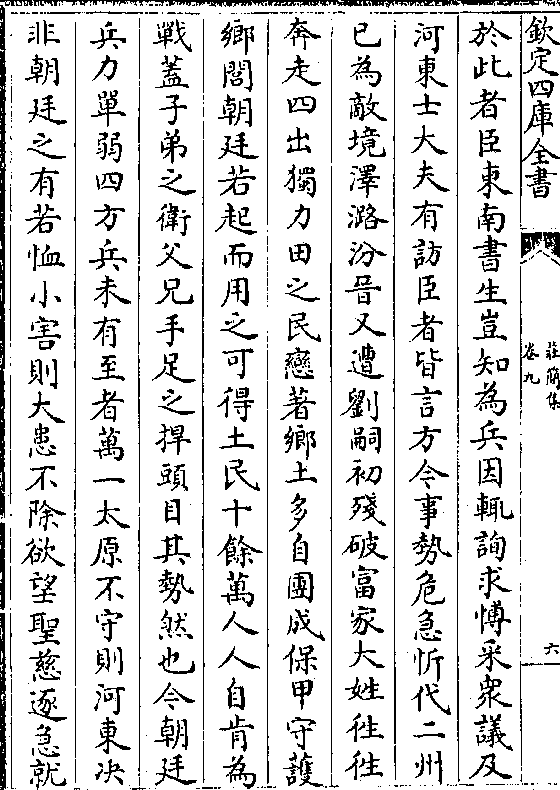 欽定四庫全書
莊簡集
卷九
六
於此者臣東南書生豈知為兵因輒詢求博采衆議及
河東士大夫有訪臣者皆言方今事勢危急忻代二州
已為敵境澤潞汾晉又遭劉嗣初殘破富家大姓往往
奔走四出獨力田之民戀著鄉土多自團成保甲守護
鄉閭朝廷若起而用之可得土民十餘萬人人自肯為
戰蓋子弟之衛父兄手足之捍頭目其勢然也今朝廷
兵力單弱四方兵未有至者萬一太原不守則河東決
非朝廷之有若恤小害則大患不除欲望聖慈逐急就